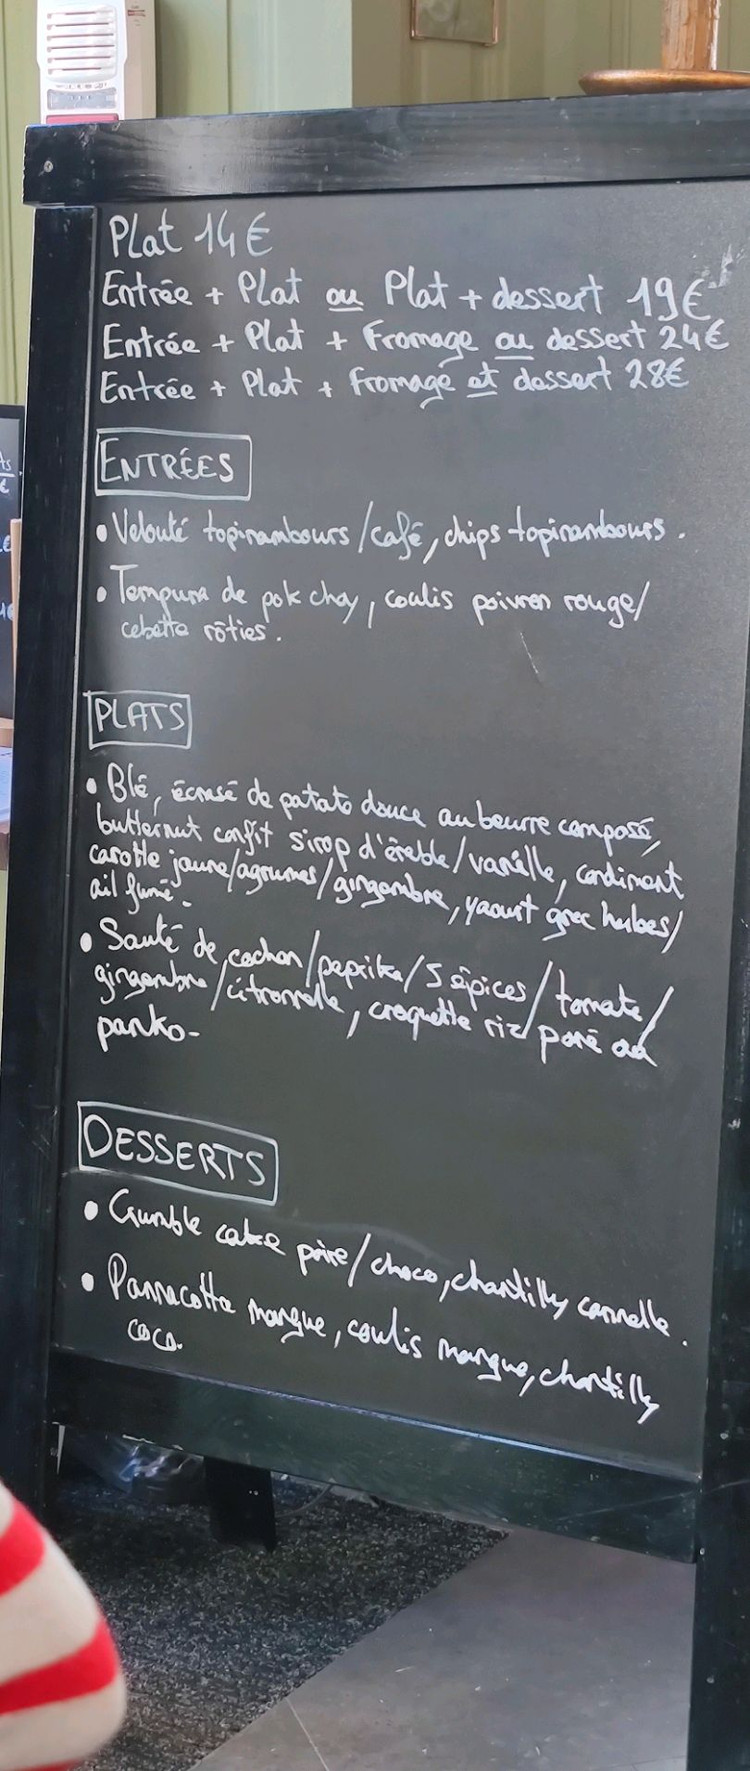 Plat 14€
Entrée + Plat ou Plat + dessert 19€
Entrée + Plat + Fromage ou dessert 24€
Entrée + Plat + fromage et dessert 28€
ENTRÉES
• Velouté topinambours/café, chips topinambours.
• Tempura de pok choy, coulis poivron rouge/
cebette rôties.
PLATS
• Blé, écrasé de patate douce au beurre composé,
butternut confit sirop d'érable/vanille, condiment
carotte jaune/agrumes/gingembre, yaourt grec herbes/
ail fumé.
• Sauté de cochon/paprika/5 épices/tomate/
gingembre/citronnelle, croquette riz pané au
panko-
DESSERTS
• Crumble cake poire/choco, chantilly cannelle.
• Pannacotta mangue, coulis mangue, chantilly
coco.